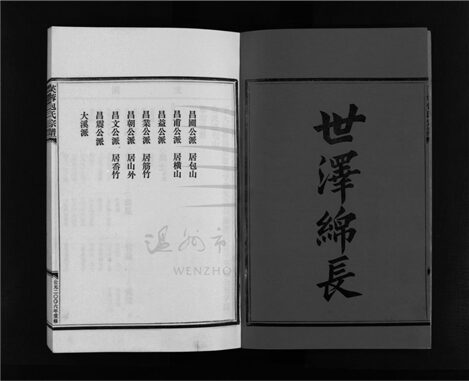 世澤綿長
昌國公派 居包山
昌甫公派 居橫山
昌益公派
昌業公派 居筋竹
昌朝公派 居山外
昌文公派 居香竹
昌震公派
大溪派
包氏宗譜
公元二〇〇六年重修
温州市
WENZHO